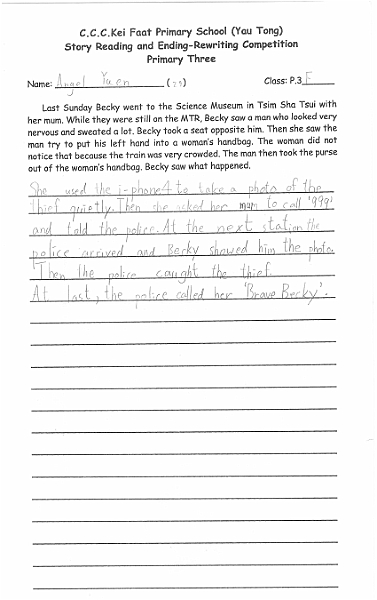 C.C.C.Kei Faat Primary School (Yau Tong)
Story Reading and Ending-Rewriting Competition
Primary Three
Name: Angel Yuen ( ) Class: P.3 F
Last Sunday Becky went to the Science Museum in Tsim Sha Tsui with
her mum. While they were still on the MTR, Becky saw a man who looked very
nervous and sweated a lot. Becky took a seat opposite him. Then she saw the
man try to put his left hand into a woman's handbag. The woman did not
notice that because the train was very crowded. The man then took the purse
out of the woman's handbag. Becky saw what happened.
She used the i-phone4 to take a photo of the
thief quietly. Then she asked her mum to call '999'
and told the police. At the next station the
police arrived and Becky showed him the photo.
Then the police caught the thief.
At last, the police called her 'Brave Becky'.